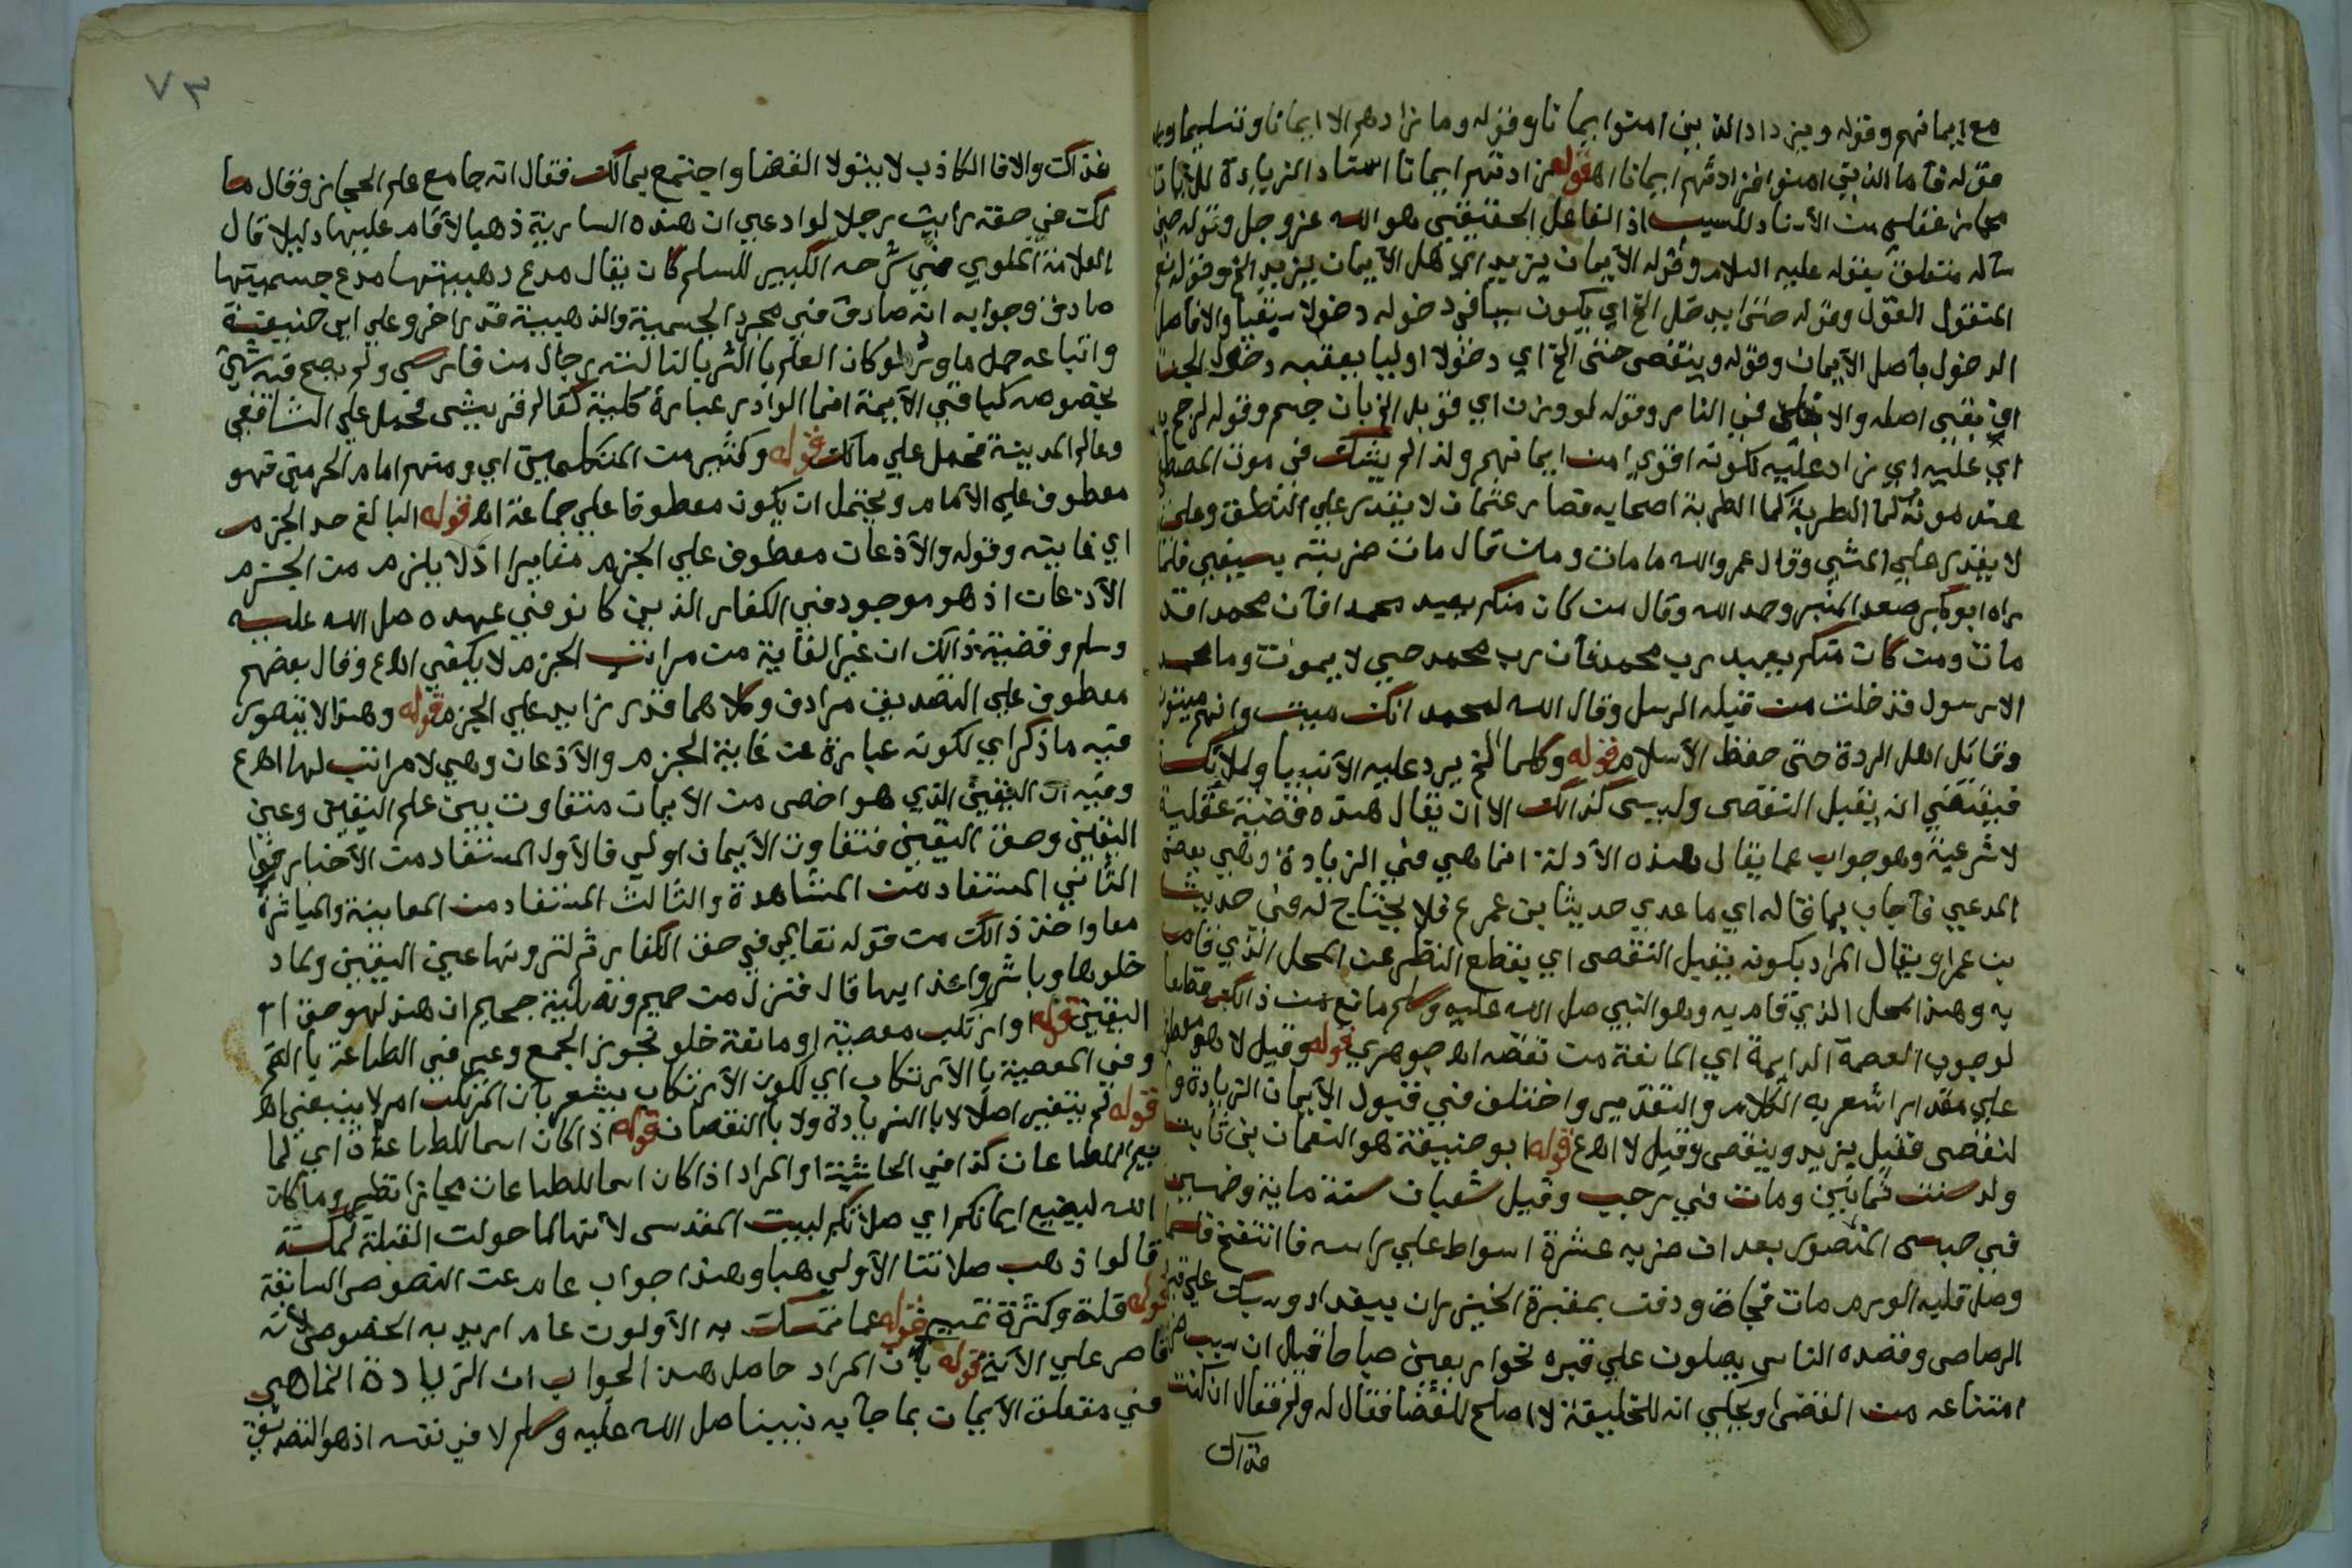 مع ايمانهم وقوله ويزداد الذين امنوا ايمانا وقوله وما زادهم الا ايمانا وتسليما
قوله فأما الذين امنوا فزادتهم ايمانا اه قوله زادتهم ايمانا اسناد الزيادة للايات
مجاز عقلي من الأسناد للسبب اذ الفاعل الحقيقي هو الله عز وجل وقوله حين
سأله متعلق بقوله عليه السلام وقوله الأيمان يزيد اي هل الأيمان يزيد الخ وقوله نعم
المقول القول وقوله حتى يدخل الخ اي يكون سببا في دخوله دخولا سبقيا والا فاصل
الدخول بأصل الأيمان وقوله وينقص حتى الخ اي دخولا اوليا يعقبه دخول الجنة
اي بقي اصله والا في النار وقوله لو وزن اي قوبل الخ بان جسم وقوله لرجح به
اي عليه اي زاد عليه لكونه اقوي من ايمانهم ولذا لم يشك في موت المصطفى
عند موته لما اضطربة اصحابه فصار عثمان لا يقدر علي النطق وعلي
لا يقدر علي المشي وقال عمر والله ما مات ومن قال مات ضربته بسيفي فلما
راه ابو بكر صعد المنبر وحمد الله وقال من كان منكم يعبد محمدا فأن محمدا قد
مات ومن كان منكم يعبد رب محمد فأن رب محمد حي لا يموت وما محمد
الا رسول قد خلت من قبله الرسل وقال الله لمحمد انك ميت وانهم ميتون
وقاتل اهل الردة حتى حفظ الأسلام قوله وكلما الخ يرد عليه الأنبيا والملائكة
فيقتضي انه يقبل النقص وليس كذالك الا ان يقال هذه قضية عقلية
لا شرعية وهو جواب عما يقال هذه الأدلة انما هي في الزيادة وهي بعض
المدعي فأجاب بما قاله اي ما عدي حديث ابن عمر ع فلا يحتاج له في حديث
بن عمر او يقال المراد بكونه يقبل النقص اي يقطع النظر عن المحل الذي قام
به وهذا المحل الذي قام به وهو النبي صل الله عليه وسلم مانع من ذالك قطعا
لوجوب العصمة الدايمة اي المانعة من نقصه اه جوهري قوله وقيل لا هو معطوف
علي مقدر اشعر به الكلام والتقدير واختلف في قبول الأيمان الزيادة وا
لنقص فقيل يزيد وينقص وقيل لا اه ع قوله ابو حنيفة هو النعمان بن ثابت
ولد سنت ثمانين ومات في رجب وقيل شعبان سنة ماية وخمسين
في حبس المنصور بعد ان ضربه عشرة اسواط علي راسه فا انتفخ
وصل قلبه الورم مات فجاة ودفن بمقبرة الخيزران ببغداد وسبك علي قبره
الرصاص وقصده الناس يصلون علي قبره نحو اربعين صباحا قيل ان سبب
امتناعه من القضى ويحكي انه للخليفة لا اصلح للقضا فقال له ولم فقال ان كنت
فذاك
٧٣
فذاك والا فا الكاذب لا يتولا القضا واجتمع بمالك فقال انه جامع علم الحجاز وقال ما
لك في حقه رايت رجلا لو ادعي ان هذه السارية ذهبا لأقام عليها دليلا قال
العلامة الملوي في شرحه الكبير للسلم كان يقال مدع ذهبيتها مدع جسميتها
صادق وجوابه انه صادق في مجرد الجسمية والذهبية قدر اخر وعلي ابي حنيفة
واتباعه حمل ما ورد لو كان العلم با الثريا لنا لته رجال من فارس ولم يصح فيه شي
بخصوصه كباقي الأيمة انما الوارد عبارة كلية كعالم قريش محمل علي الشافعي
وعالم المدينة محمل علي مالك قوله وكثير من المتكلمين اي ومنهم امام الحرمين فهو
معطوف علي الأمام ويحتمل ان يكون معطوفا علي جماعة اه قوله البالغ حد الجزم
اي غايته وقوله والأذعان معطوف علي الجزم مغايرا اذ لا يلزم من الجزم
الأذعان اذ هو موجود في الكفار الذين كانو في عهده صل الله عليه
وسلم وقضية ذالك ان غير الغاية من مراتب الجزم لا يكفي اه ع وقال بعضهم
معطوف علي التصديق مرادف وكلاهما قدر زايد علي الجزم قوله وهذا لا يتصور
فيه ما ذكر اي لكونه عبارة عن غاية الجزم والأذعان وهي لا مراتب لها اه ع
وفيه ان اليقين الذي هو اخص من الأيمان متفاوت بين علم اليقين وعين
اليقين وحق اليقين فتفاوت الأيمان اولي فالأول المستفاد من الأخبار
الثاني المستفاد من المشاهدة والثالث المستفاد من المعاينة والمباشرة
معا واخذ ذالك من قوله تعالي في حق الكفار ثم لترونها عين اليقين ولما د
خلوها وباشروا عذابها قال فنزل من حميم وتصلية جحيم ان هذا لهو حق ا
اليقين قوله او ارتكب معصية او مانعة خلو تجوز الجمع وعبر في الطاعة با
وفي المعصية با الأرتكاب اي لكون الأرتكاب يشعر بان المرتكب امر لا ينبغي اه
قوله لم يتغير اصلا لا با الزيادة ولا با النقصان قوله اذا كان اسما للطاعات اي لما
للطاعات كذا في الحاشية او المراد اذا كان اسما للطاعات مجازا نظير وما كان
الله ليضيع ايمانكم اي صلاتكم لبيت المقدس لأنها لما حولت القبلة لمكة
قالوا ذهب صلاتنا الأولي هبا وهذا جواب عام عن النصوص السابقة
قوله قلة وكثرة تمييز قوله عما تمسك به الأولون عام اريد به الخصوص لأنه
قاصر علي الأية قوله بأن المراد حاصل هذا الجواب ان الزيادة انما هي
في متعلق الأيمان بما جأ به نبينا صل الله عليه وسلم لا في نفسه اذ هو التصديق